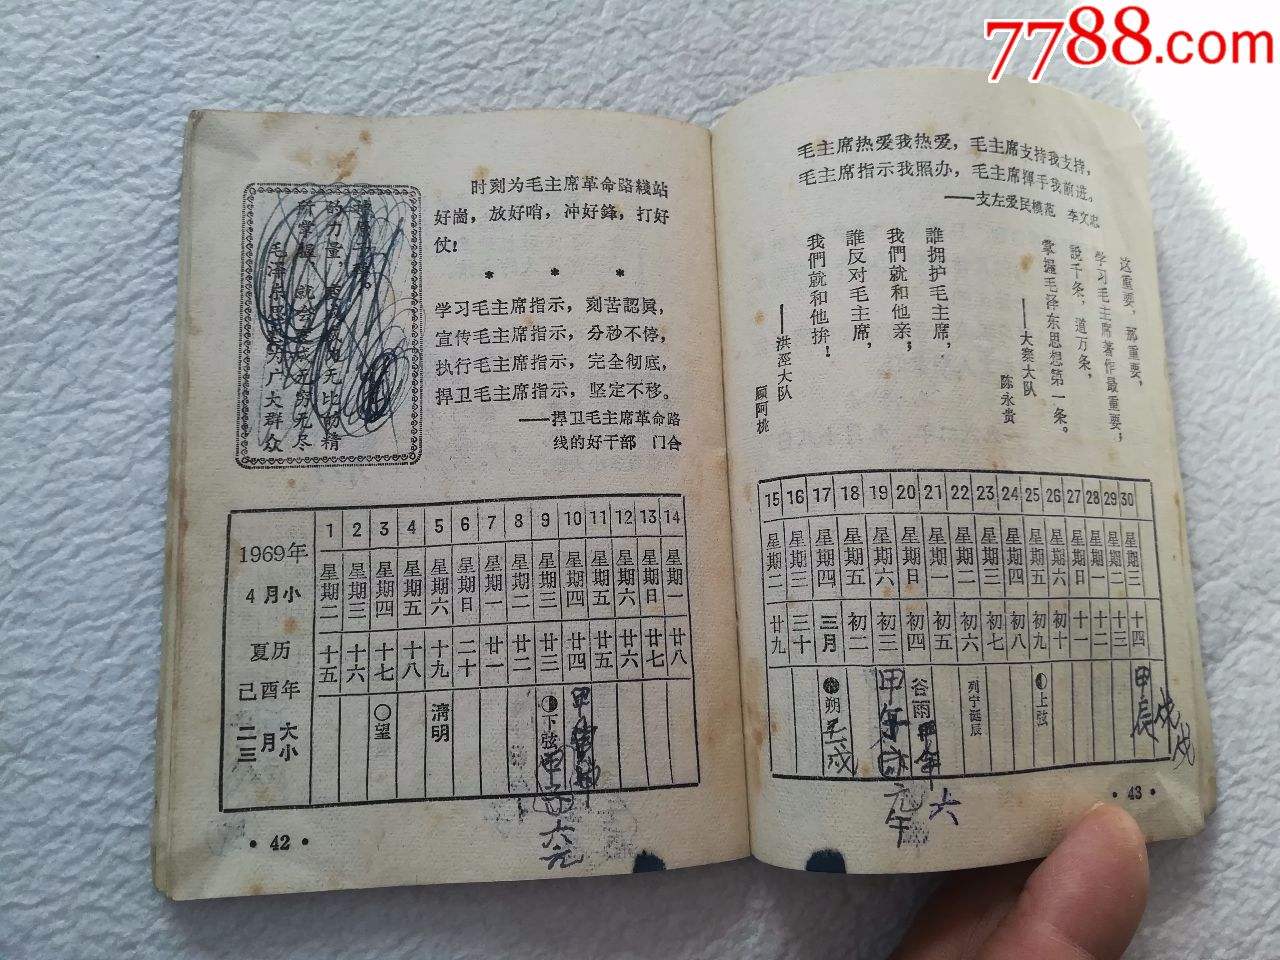 7788.com
毛泽东思想为广大群众
所掌握，就会变成无穷无尽
的力量，变成威力无比的精
神原子弹。
时刻为毛主席革命路綫站
好崗，放好哨，冲好鋒，打好
仗！
* * *
学习毛主席指示，刻苦認眞，
宣传毛主席指示，分秒不停，
执行毛主席指示，完全彻底，
捍卫毛主席指示，坚定不移。
——捍卫毛主席革命路
线的好干部 门合
1969年
4月小
夏历
己酉年
二月大
三月小
1 2 3 4 5 6 7 8 9 10 11 12 13 14
星期二 星期三 星期四 星期五 星期六 星期日 星期一 星期二 星期三 星期四 星期五 星期六 星期日 星期一
十五 十六 十七 十八 十九 二十 廿一 廿二 廿三 廿四 廿五 廿六 廿七 廿八
○望 清明 下弦
六元
·42·
毛主席热爱我热爱，毛主席支持我支持，
毛主席指示我照办，毛主席揮手我前进。
——支左爱民模范 李文忠
这重要，那重要，
学习毛主席著作最重要；
說千条，道万条，
掌握毛泽东思想第一条。
——大寨大队
陈永贵
誰拥护毛主席，
我們就和他亲；
誰反对毛主席，
我們就和他拚！
——洪涇大队
顾阿桃
15 16 17 18 19 20 21 22 23 24 25 26 27 28 29 30
星期二 星期三 星期四 星期五 星期六 星期日 星期一 星期二 星期三 星期四 星期五 星期六 星期日 星期一 星期二 星期三
廿九 三十 三月 初二 初三 初四 初五 初六 初七 初八 初九 初十 十一 十二 十三 十四
朔 谷雨 列宁誕辰 上弦
甲午
甲辰
元午
六
戌
·43·